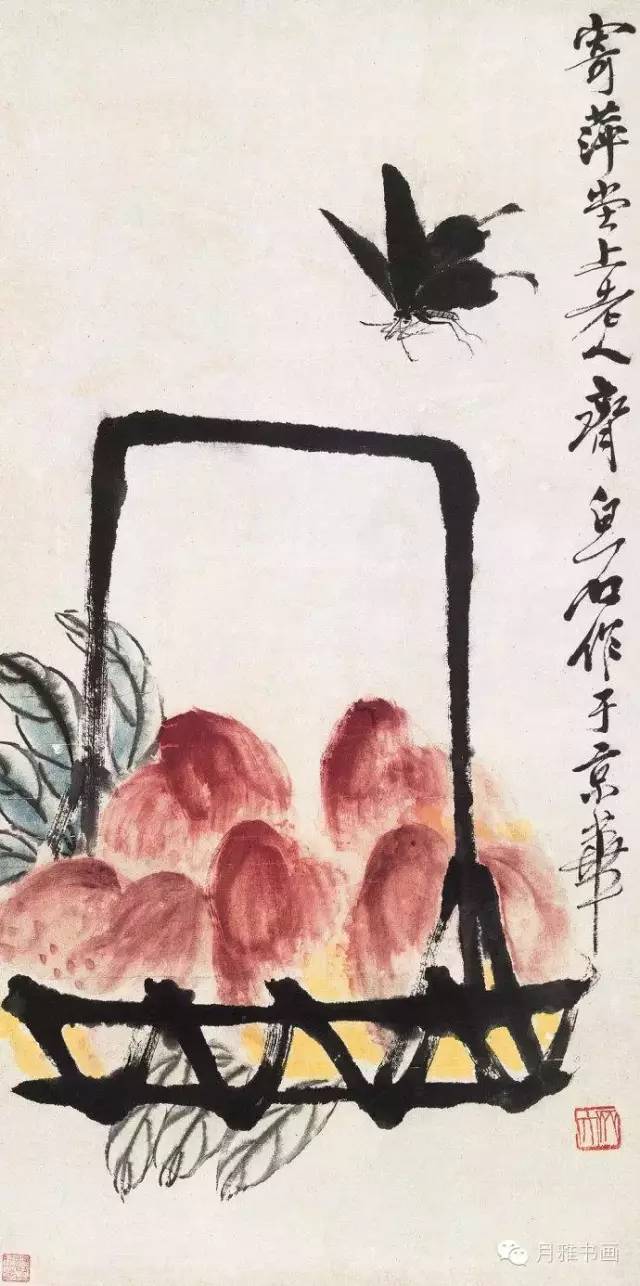 寄萍堂上老人齊白石作于京華
木人
月雅书画